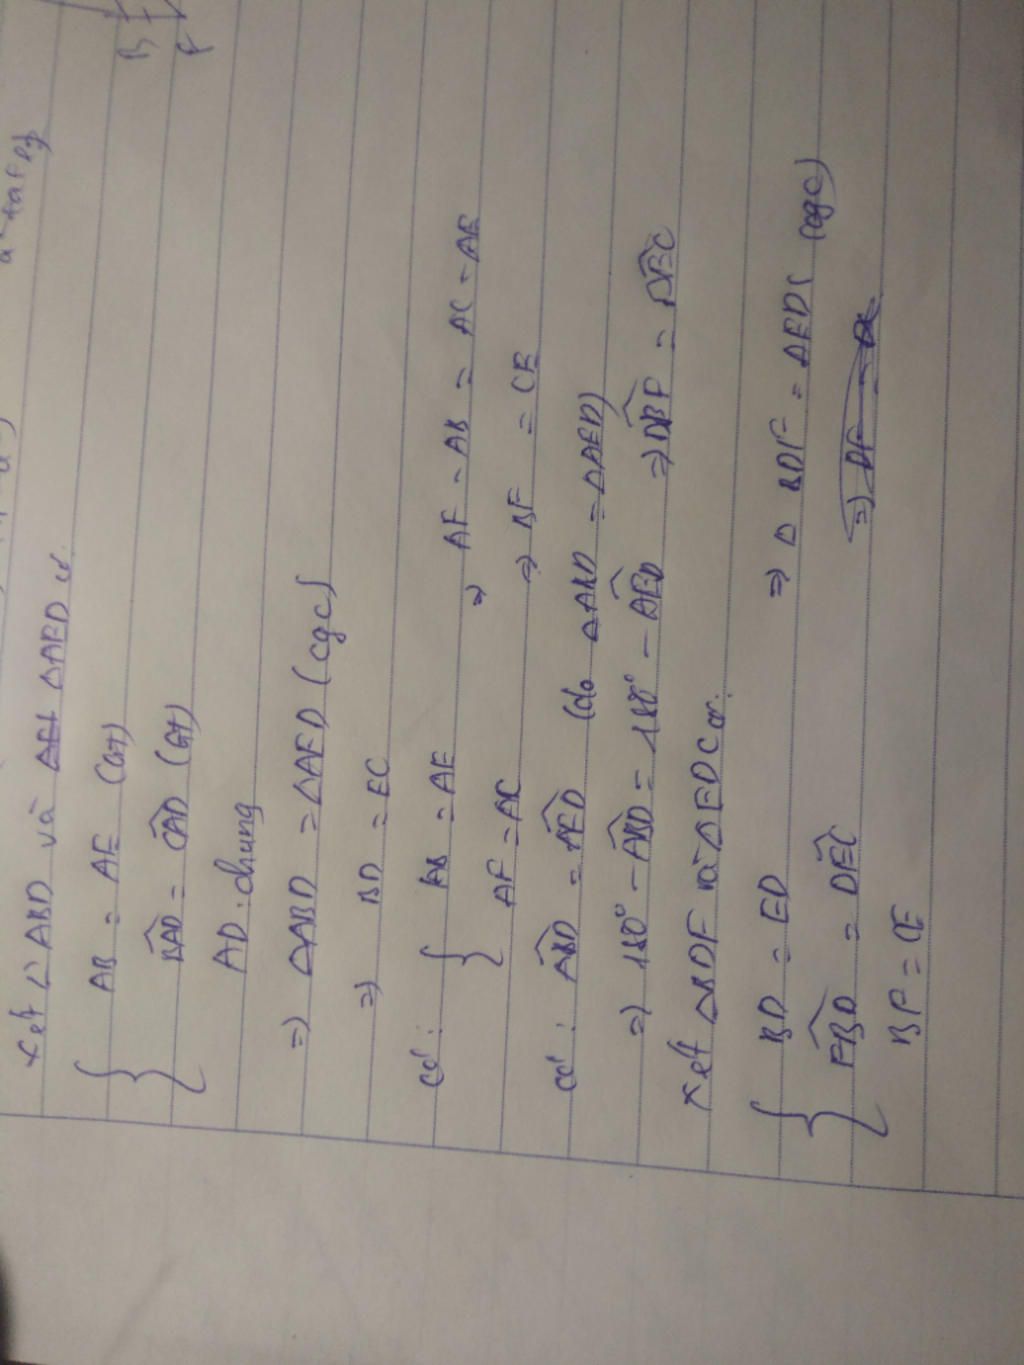 Xét △ABD và △AED có
AB = AE (GT)
BAD = CAD (GT)
AD chung
=> △ABD = △AED (cgc)
=> BD = EC
có: AB = AE => AF - AB = AC - AE
AF = AC => BF = CE
có: ABD = AED (do △ABD = △AED)
=> 180° - ABD = 180° - AED => DBF = DEC
Xét △BDF và △EDC có:
BD = ED => △ BDF = △EDC (cgc)
FBD = DEC => DF = DC
BF = CE
B
F